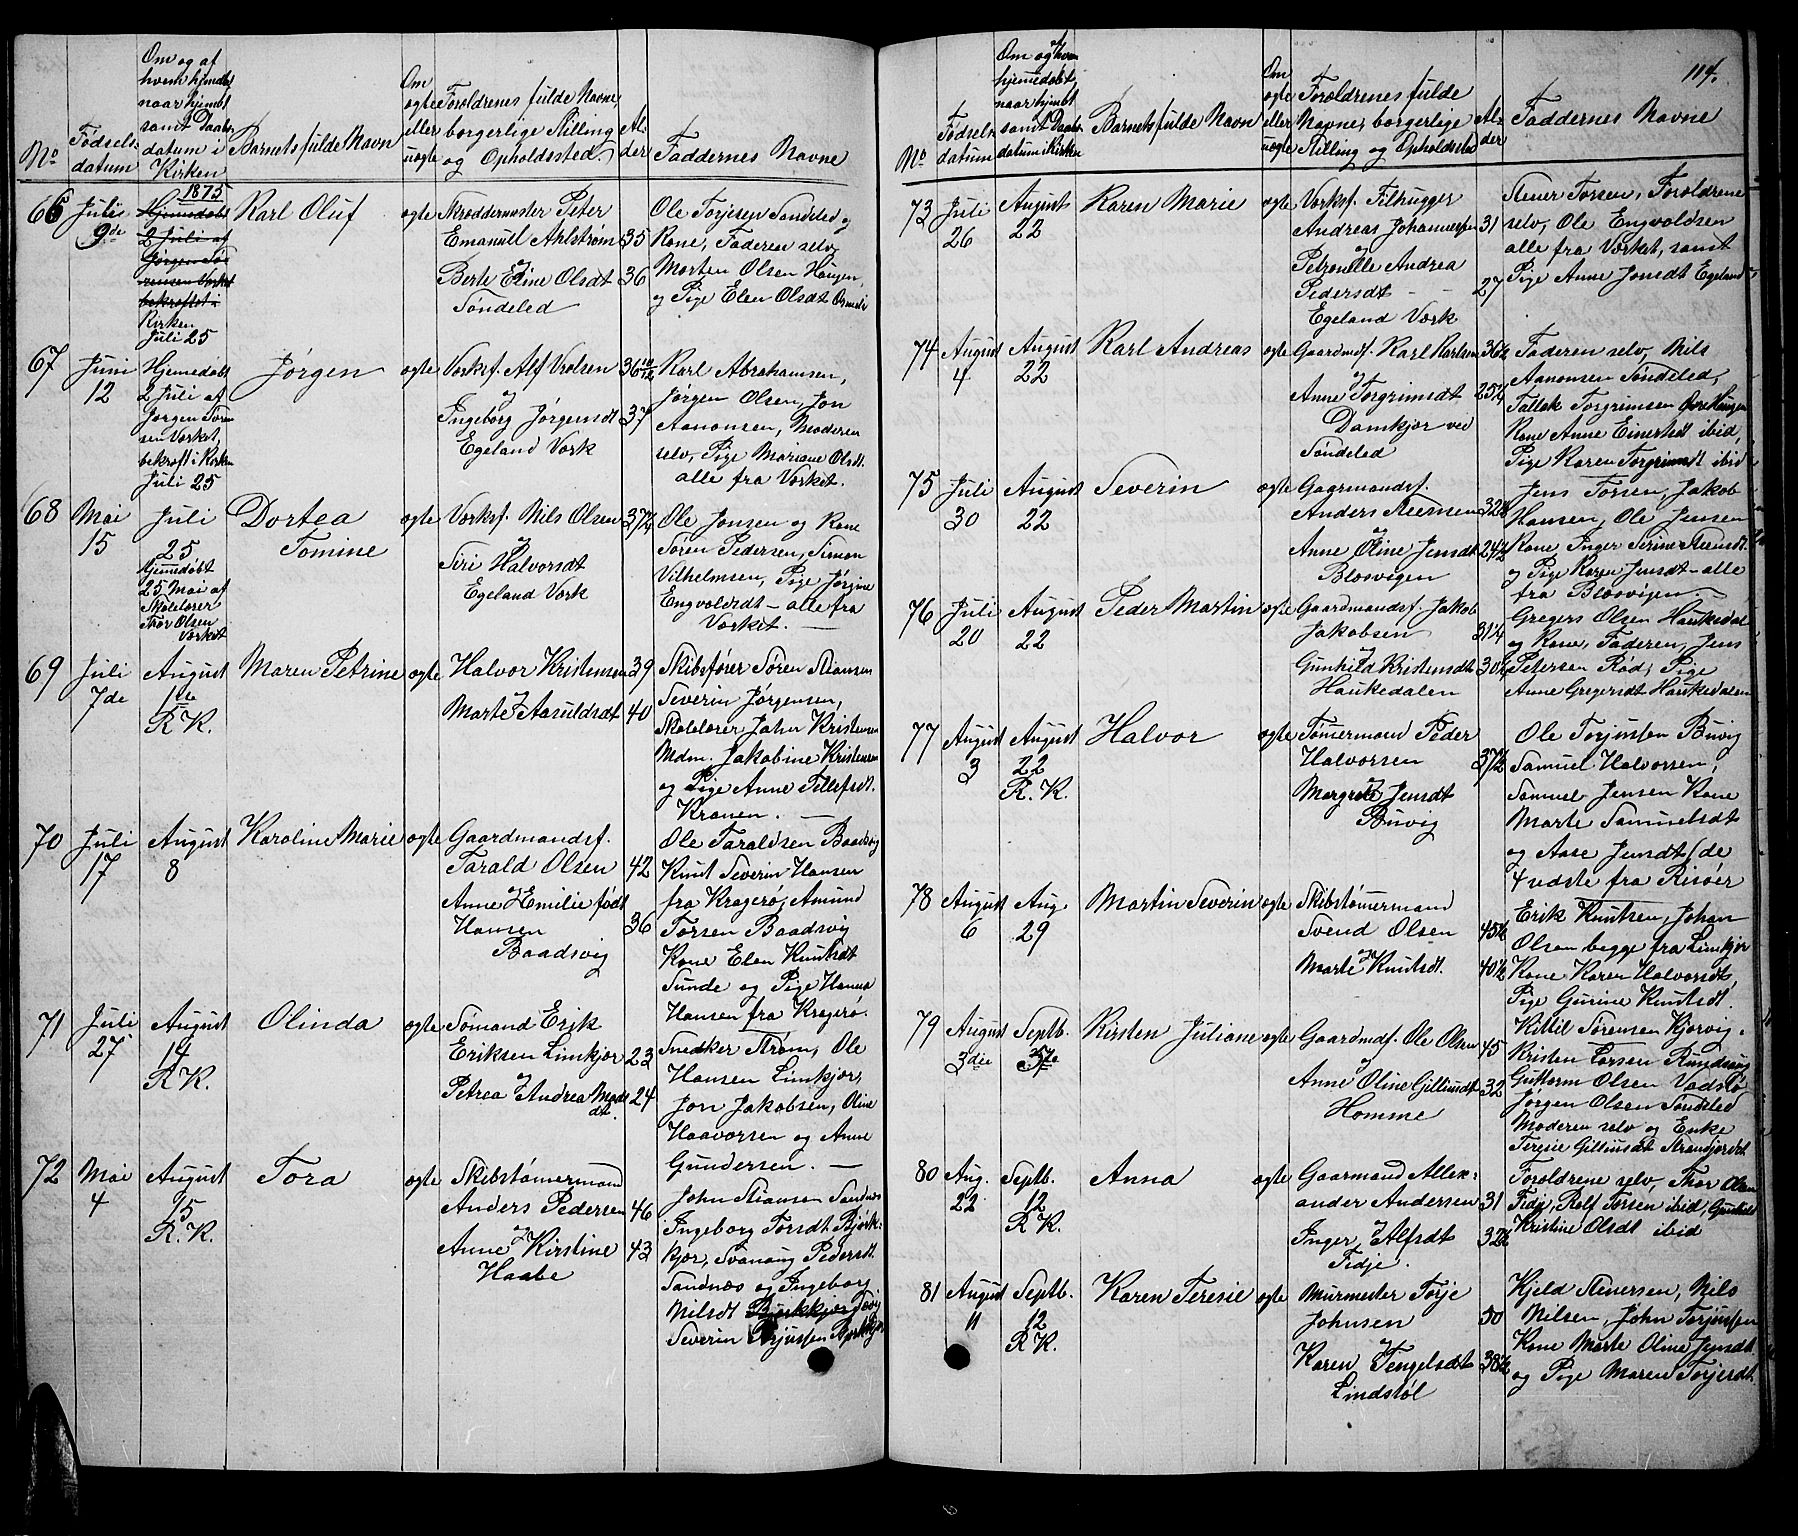 Om og af
hvem hjemdøbt
naar hjembl
samt Daabs-
datum i
Kirken
No Fødsels-
datum
Barnets fulde Navn
Om
ægte
eller
uægte
Forældrenes fulde Navne,
borgerlige Stilling
og Opholdssted.
Al-
der
Faddernes Navne
1875
66 Juli
9de
Hjemmedøbt
2 Juli af
Jørgen Sør
rensen Værket
bekræftet i
Kirken
Juli 25
Karl Oluf
ægte
Skræddermester Peter
Emanuel Ahlstrøm 35
og
Berte Eline Olsdt 36
Søndeled
Ole Torjusen Søndeled og
Kone, Faderen selv,
Morten Olsen Haugen,
og Pige Elen Olsdt
67 Juni
12
Hjemmedøbt
2 Juli af
Jørgen Søren
sen Værket,
bekræft i Kirken
Juli 25
Jørgen
ægte
Værksf. Alf Vrolsen 36 10/12
og
Ingeborg Jørgensdt 37
Egeland Værk
Karl Abrahamsen,
Jørgen Olsen, Jon
Aanonsen, Moderen
selv, Pige Mariane Olsdt.
alle fra Værket.
68 Mai
15
Juli
25
hjemmedøbt
25 Mai af
Skolelærer
Thor Olsen
Værket
Dortea
Tomine
ægte
Værksf. Nils Olsen 37½
og
Siri Halvorsdt
Egeland Værk
Ole Jonsen og Kone
Søren Pedersen, Simon
Vilhelmsen, Pige Jørgine
Engvoldsdt – alle fra
Værket. –
69 Juli
7de
August
1ste
R.K.
Maren Petrine
ægte
Halvor Kristensen 39
og
Marte Aasuldsdt 40
Skibsfører Søren Stiansen
Severin Jørgensen,
Skolelærer John Kristensen
Mdm. Jakobine Kristensen
og Pige Anne Tellefsdt.
Kranen. –
70 Juli
17
August
8
Karoline Marie
ægte
Gaardmandsf.
Tarald Olsen 42
og
Anne Emilie født
Hansen 36
Baadsvig
Ole Taraldsen Baadsvig
Knut Severin Hansen
fra Kragerø, Amund
Torsen Baadsvig
Kone Elen Knutsdt
Sunde og Pige Hanna
Hansen fra Kragerø.
71 Juli
27
August
14
R.K.
Olinda
ægte
Sømand Erik
Eriksen Limkjær 23
og
Petrea Andrea Mads
dt. 24
Snedker Strøm, Ole
Hansen Limkjær,
Jon Jakobsen, Oline
Haavorsen og Anne
Gundersen. –
72 Mai
4
August
15
R.K.
Tora
ægte
Skibstømermand
Anders Pedersen 46
og
Anne Kirstine 43
Haabe
John Stiansen Sandnæs
Ingeborg Torsdt. Bjørk-
kjær, Svanaug Pedersdt.
Sandnæs og Ingeborg
Nilsdt Bjørkkjær
Severin Torjussen Bjørkkjær
114.
No
Fødsels
datum
Om og af hvem
hjemmedøbt,
naar hjembt
samt Daabs-
datum i Kirken
Barnets fulde Navn
Om
ægte
eller
uægte
Forældrenes fulde
Navne, borgerlige
Stilling og Opholdssted
Al-
der
Faddernes Navne
73 Juli
26
August
22
Karen Marie
ægte
Værksf. Filhugger
Andreas Johannessen 31
og
Petronelle Andrea
Pedersdt – – 27
Egeland Værk
Stener Torsen, Forældrene
selv, Ole Engvoldsen
alle fra Værket, samt
Pige Anne Jonsdt Egeland
74 August
4
August
22
Karl Andreas
ægte
Gaardmdsf. Karl Karlsen 36½
og
Anne Torgrimsdt 25½
Damkjær ved
Søndeled
Faderen selv, Nils
Aanonsen Søndeled,
Tallak Torgrimsen Øvre Haugen
Kone Anne Einertsdt ibid,
Pige Karen Torgrimsdt ibid
75 Juli
30
August
22
Severin
ægte
Gaarmandsf.
Anders Steensen 32¾
og
Anne Oline Jensdt 24½
Blæsvigen
Jens Torsen, Jakob
Hansen, Ole Jensen
Kone Inger Serine Steensdt.
og Pige Karen Jensdt – alle
fra Blæsvigen. –
76 Juli
20
August
22
Peder Martin
ægte
Gaardmandsf. Jakob
Jakobsen 31¼
og
Gunhild Kristensdt 30½
Haukedalen
Gregers Olsen Haukedalen
og Kone, Faderen, Jens
Petersen Rød, Pige
Anne Gregersdt Haukedalen
77 August
3
August
22
R.K.
Halvor
ægte
Tømermand Peder
Halvorsen 37½
og
Margrete Jensdt
Buvig
Ole Torjussen Buvig
Samuel Halvorsen,
Samuel Jensen Kone
Marte Samuelsdt
og Aase Jensdt (de
4 sidste fra Risøer
78 August
6
Aug.
29
Martin Severin
ægte
Skibstømermand
Svend Olsen 45½
og
Marte Knutsdt. 40½
Erik Knutsen, Johan
Olsen begge fra Limkjær
Kone Karen Halvorsdt,
Pige Gurine Knutsdt.
79 August
3die
Septb.
5te
Kirsten Juliane
ægte
Gaardmdsf. Ole Olsen 45
og
Anne Oline Gilliusdt 32
Homme
Kittil Sørensen Kjørvig.
Kristen Larsen Rundsvig
Guttorm Olsen Vadstø
Jørgen Olsen Søndeled
Moderen selv og Enke
Teresie Gilliusdt
80 Aug.
22
Septb.
12
R.K.
Anna
ægte
Gaarmand Allex-
ander Andersen 31
og
Inger Alfsdt 32½
Fidje.
Forældrene selv, Thor Olsen
Fidje, Rolf Torsen ibid, Gunhild
Kristine Olsdt ibid
81 August
11
Septb.
12
R.K.
Karen Teresie
ægte
Murmester Torje
Johnsen 30
og
Karen Tengelsdt 38½
Lindstøl
Kjeld Stenersen, Nils
Nilsen, John Torjussen
Kone Marte Oline Jensdt
og Pige Maren Torjersdt.